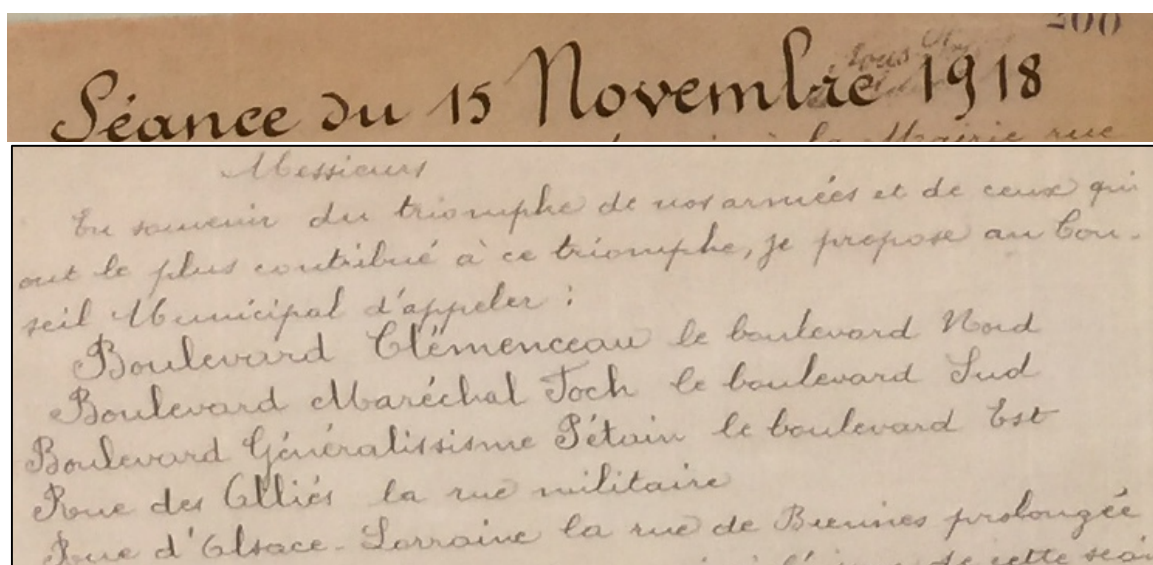 200
Séance du 15 Novembre 1918
la Mairie rue
Messieurs
En souvenir du triomphe de nos armées et de ceux qui
ont le plus contribué à ce triomphe, je propose au Con-
seil Municipal d'appeler :
Boulevard Clémenceau le boulevard Nord
Boulevard Maréchal Foch le boulevard Sud
Boulevard Généralissime Pétain le boulevard Est
Rue des Alliés la rue militaire
Rue d'Alsace-Lorraine la rue de Buennes prolongée
de cette séan